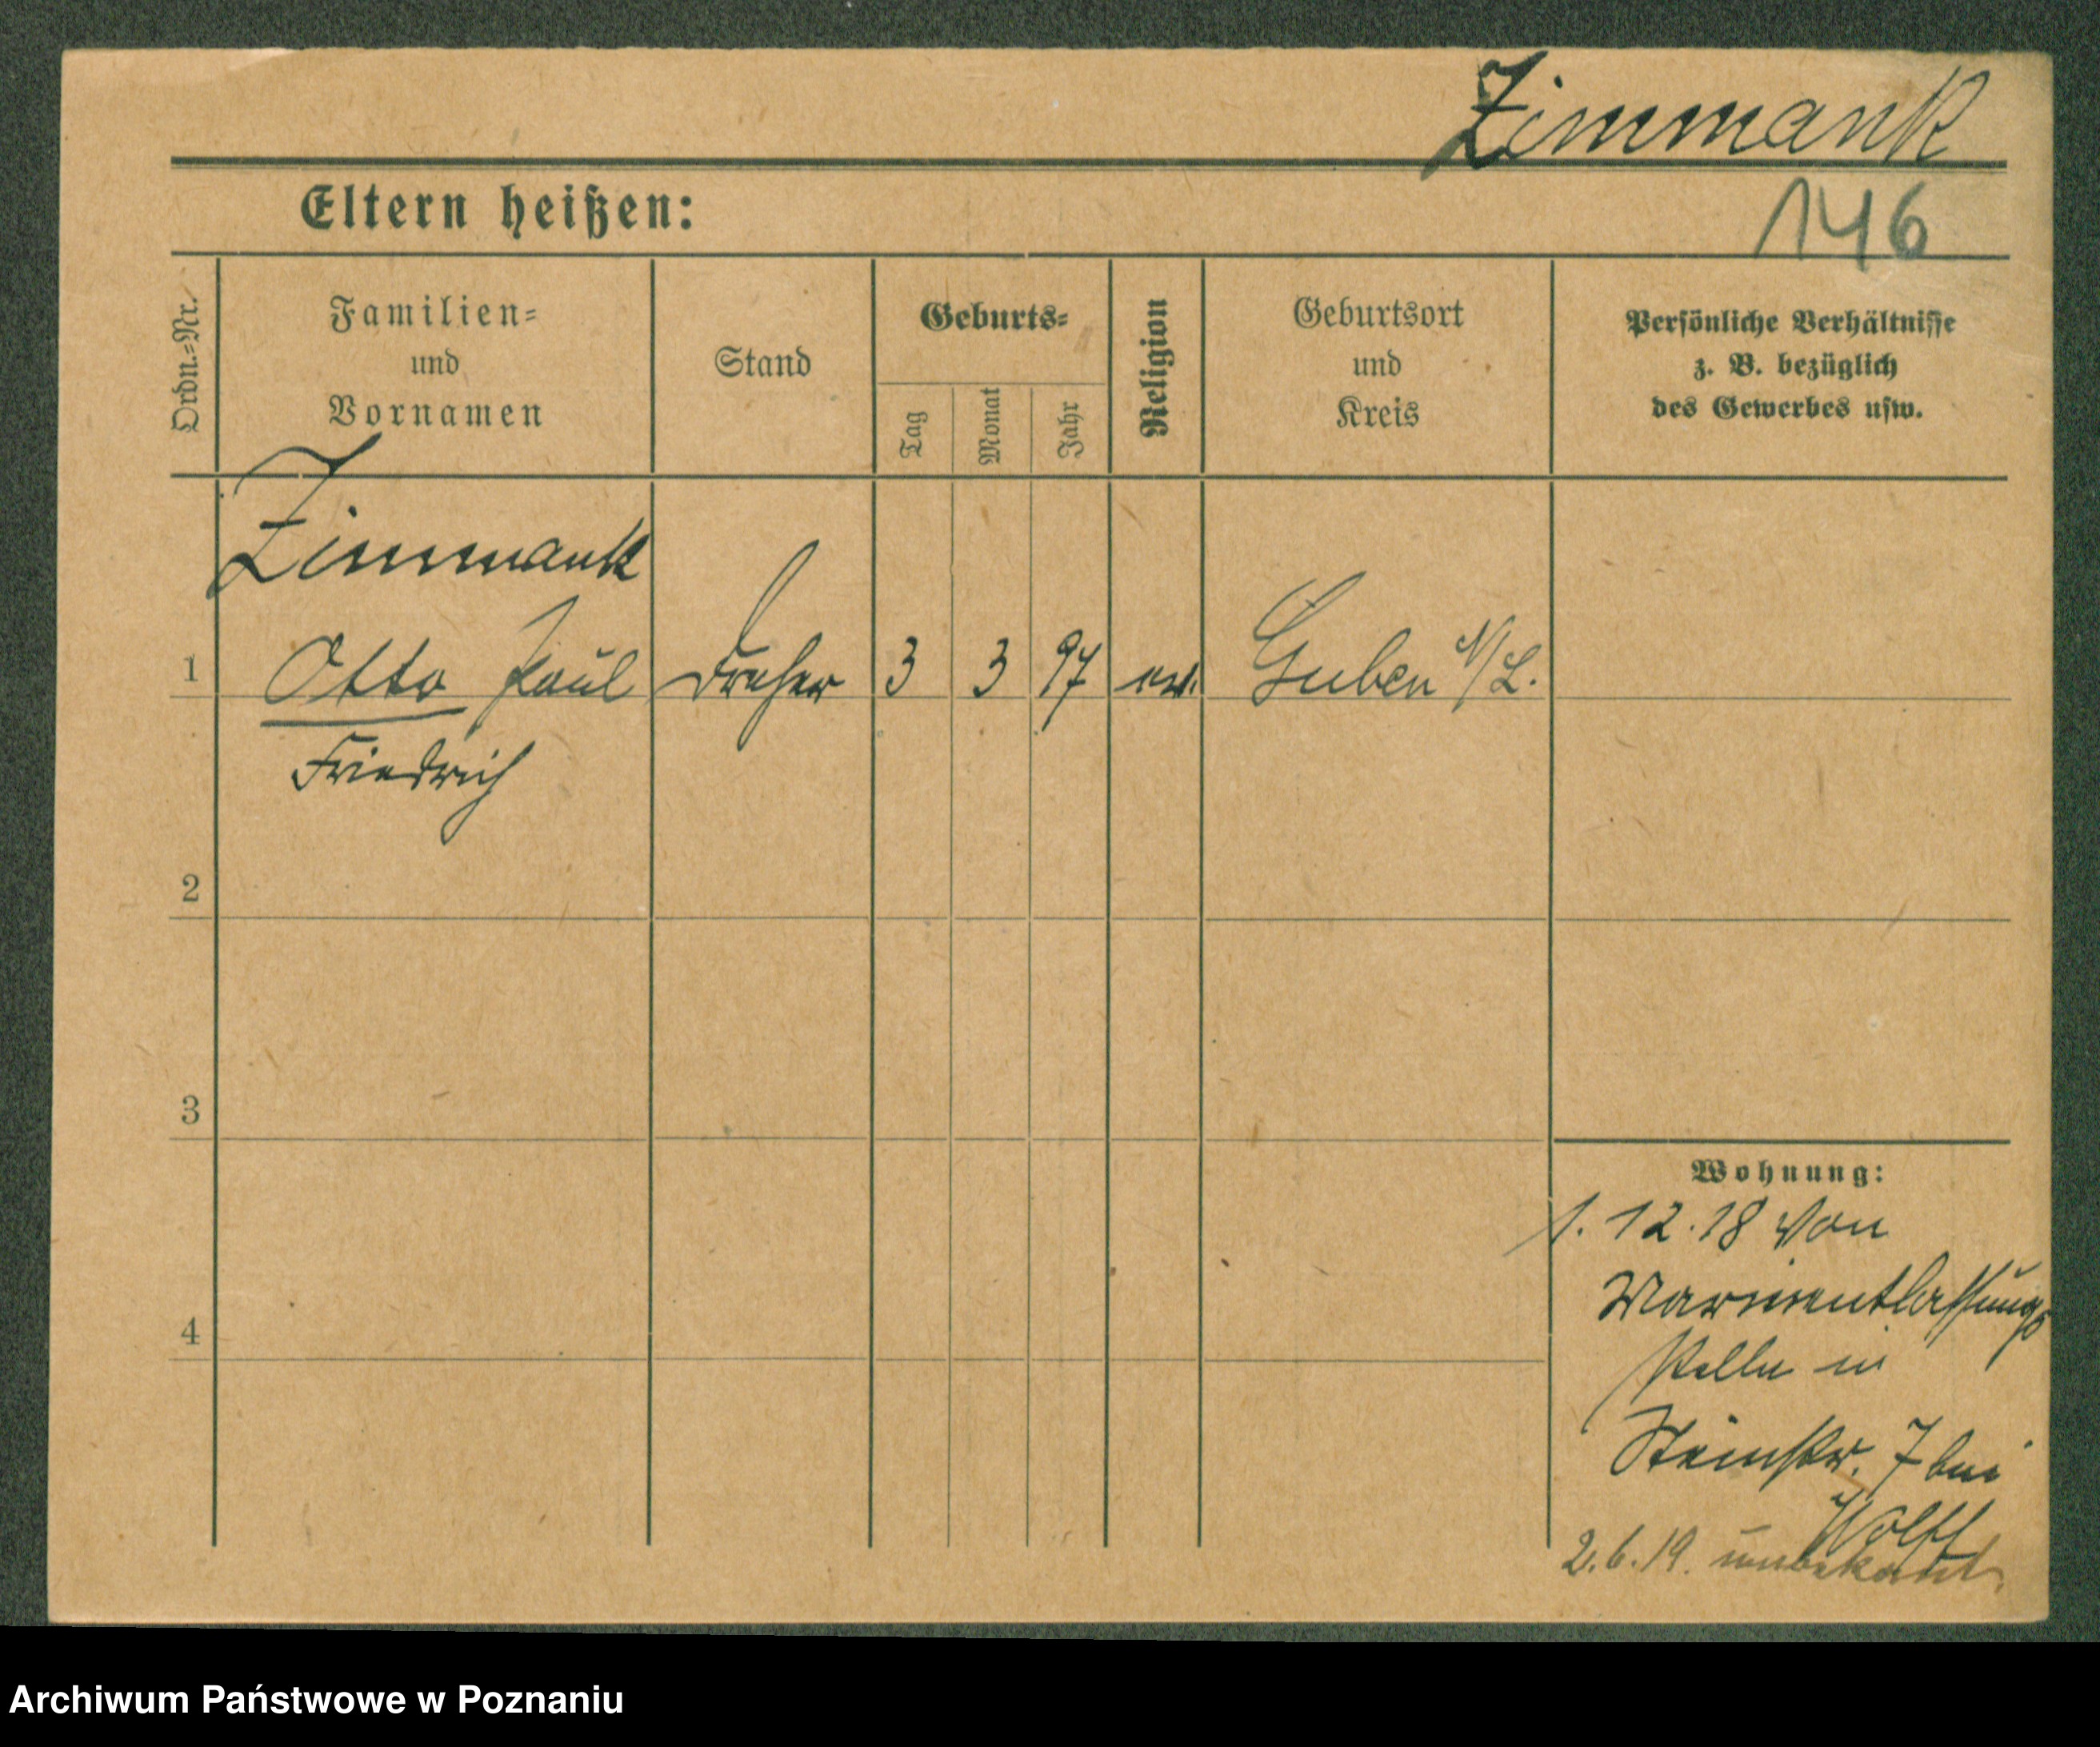 Zimmank
Eltern heißen:
146
Ordn.=Nr.
Familien=
und
Vornamen
Stand
Geburts=
Tag
Monat
Jahr
Religion
Geburtsort
und
Kreis
Persönliche Verhältnisse
z. B. bezüglich
des Gewerbes usw.
Zimmank
1 Otto Paul Dreher 3 3 97 ev. Guben N/L.
Friedrich
2
3
4
Wohnung:
1. 12. 18 von
Marineentlassungs
stelle in
Steinstr. 7 bei
Wolff
2. 6. 19. unbekannt.
Archiwum Państwowe w Poznaniu